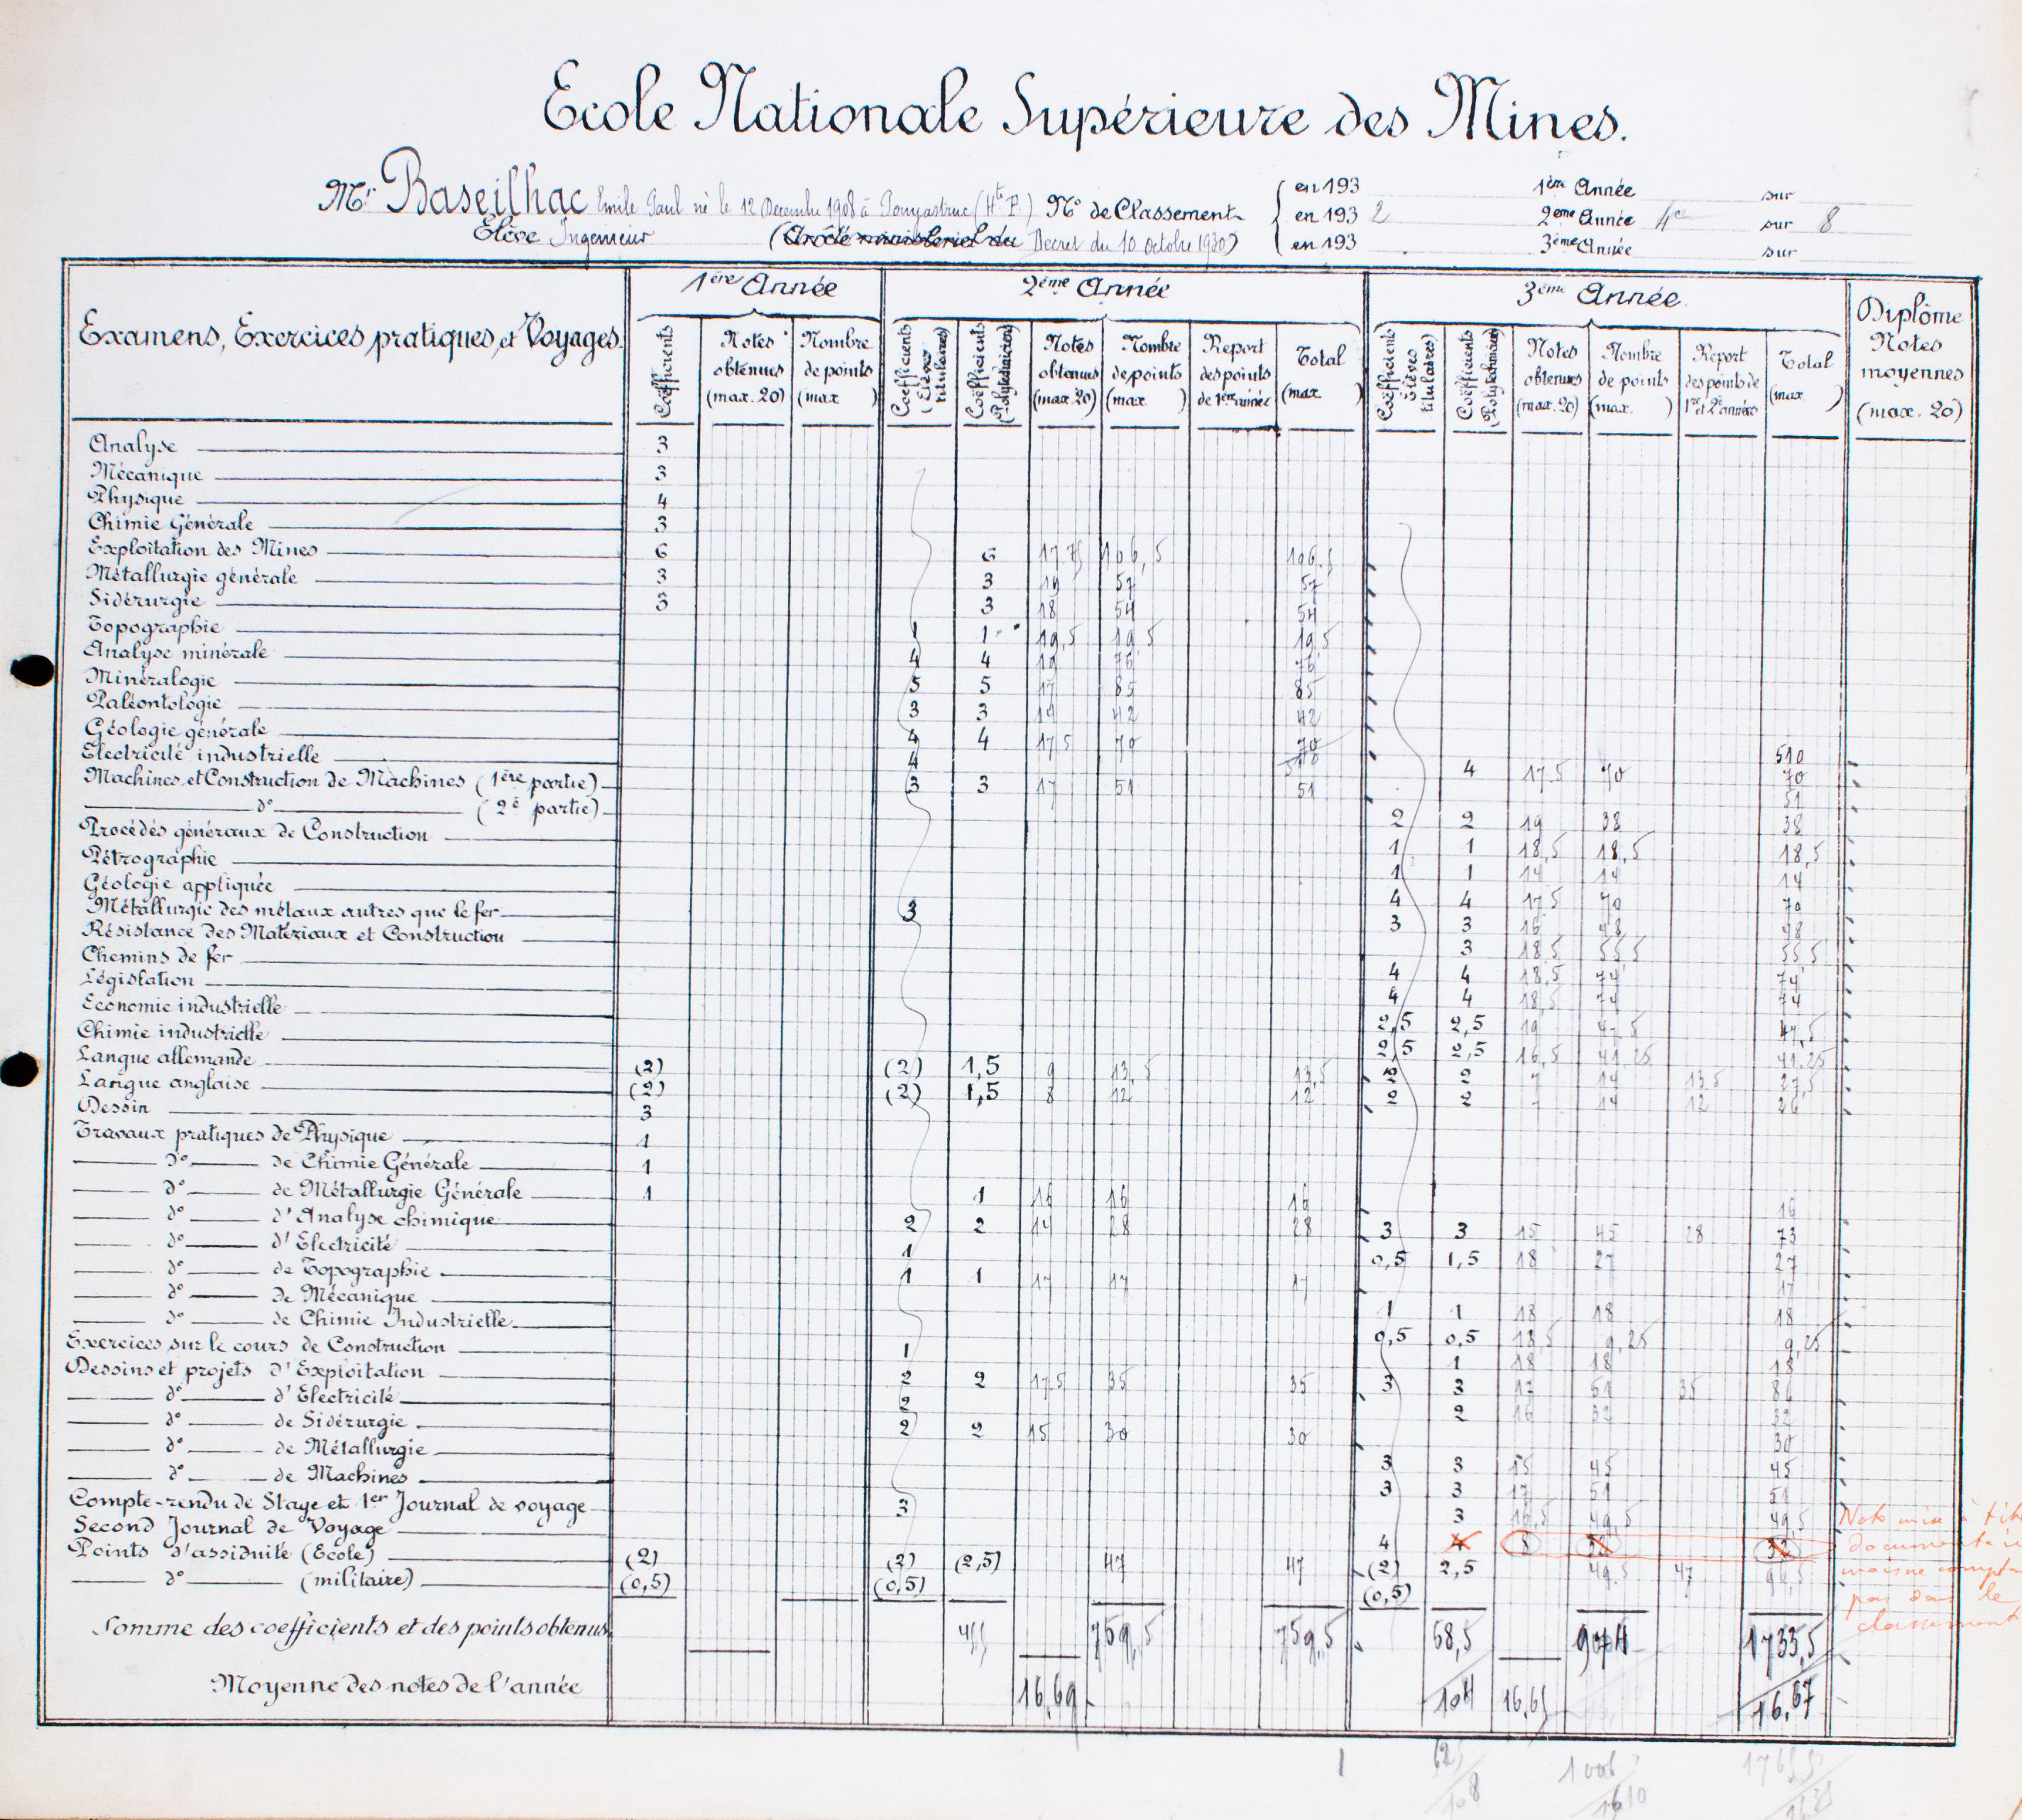 Ecole Nationale Supérieure des Mines.
Mr. Baseilhac Emile Paul né le 12 Décembre 1908 à Pouyastruc (Hte P.) No de Classement
Elève Ingénieur (Arrêté ministériel du Décret du 10 octobre 1930)
en 193 1ère Année sur
en 1932 2ème Année 4e sur 8
en 193 3ème Année sur
Examens, Exercices pratiques, et Voyages. 1ère Année 2ème Année 3ème Année. Diplôme Notes moyennes (max. 20)
Coëfficients Notes obtenues (max. 20) Nombre de points (max ) Coëfficients (Elèves titulaires) Coëfficients (Polytechniciens) Notes obtenues (max 20) Nombre de points (max ) Report des points de 1ère année Total (max ) Coëfficients (Elèves titulaires) Coëfficients (Polytechniciens) Notes obtenues (max. 20) Nombre de points (max. ) Report des points de 1re et 2e années Total (max )
Analyse 3
Mécanique 3
Physique 4
Chimie Générale 3
Exploitation des Mines 6 6 17.75 106,5 106.5
Métallurgie générale 3 3 19 57 57
Sidérurgie 3 3 18 54 54
Topographie 1 1 19,5 19,5 19,5
Analyse minérale 4 4 19 76 76
Minéralogie 5 5 17 85 85
Paléontologie 3 3 14 42 42
Géologie générale 4 4 17,5 70 70 510
Electricité industrielle 4 4 17.5 70 70
Machines et Construction de Machines (1ère partie) 3 3 17 51 51 51
do (2e partie) 2 2 19 38 38
Procédés généraux de Construction 1 1 18,5 18,5 18,5
Pétrographie 1 1 14 14 14
Géologie appliquée 4 4 17,5 70 70
Métallurgie des métaux autres que le fer 3 3 3 16 48 48
Résistance des Matériaux et Construction 3 18,5 55,5 55,5
Chemins de fer 4 4 18,5 74 74
Législation 4 4 18,5 74 74
Economie industrielle 2,5 2,5 19 47,5 47,5
Chimie industrielle 2,5 2,5 16,5 41,25 41,25
Langue allemande (2) (2) 1,5 9 13,5 13,5 2 2 7 14 13,5 27,5
Langue anglaise (2) (2) 1,5 8 12 12 2 2 7 14 12 26
Dessin 3
Travaux pratiques de Physique 1
do de Chimie Générale 1
do de Métallurgie Générale 1 1 16 16 16 16
do d'Analyse chimique 2 2 14 28 28 3 3 15 45 28 73
do d'Electricité 1 0,5 1,5 18 27 27
do de Topographie 1 1 17 17 17 17
do de Mécanique 1 1 18 18 18
do de Chimie Industrielle 0,5 0,5 18,5 9,25 9,25
Exercices sur le cours de Construction 1 1 18 18 18
Dessins et projets d'Exploitation 2 2 17.5 35 35 3 3 17 51 35 86
do d'Electricité 2 2 16 32 32
do de Sidérurgie 2 2 15 30 30 30
do de Métallurgie 3 3 15 45 45
do de Machines 3 3 17 51 51
Compte-rendu de Stage et 1er Journal de voyage 3 3 16,5 49,5 49,5
Second Journal de Voyage 4 4 8 32 32
Points d'assiduité (Ecole) (2) (2) (2,5) 47 47 (2) 2,5 49.5 47 96,5
do (militaire) (0,5) (0,5) (0,5)
Note mise à titre
documentaire
mais ne compte
pas dans le
classement
Somme des coefficients et des points obtenus 45,5 759,5 759,5 58,5 974 1733,5
Moyenne des notes de l'année 16,69 104 16,65 16,67
62,5 1006 1765,5
108 1610